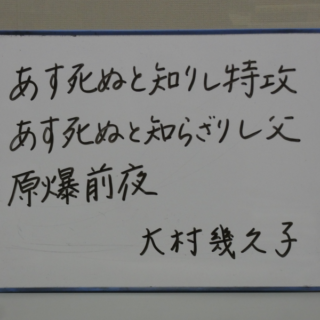 あす死ぬと知りし特攻
あす死ぬと知らざりし父
原爆前夜
大村幾久子